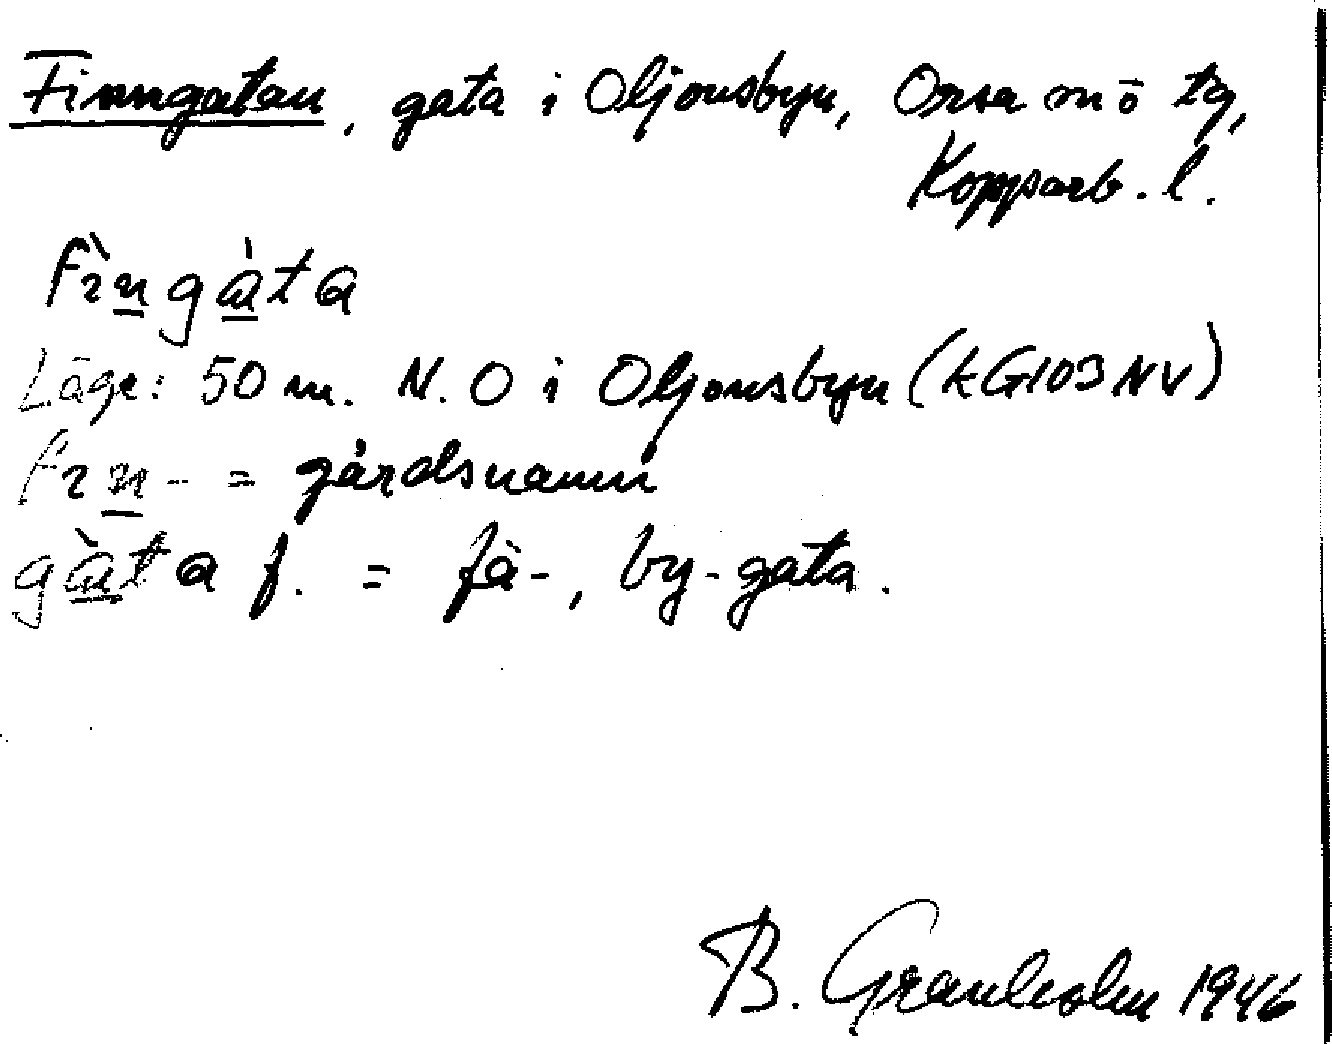 Finngatan, gata i Oljonsbyn, Orsa m ō tg,
Kopparb. l.
Fìngàta
Läge: 50 m. N.O i Oljonsbyn (kG103NV)
Fìn- = gårdsnamn
gàta f. = fä-, by-gata.
B. Granholm 1946